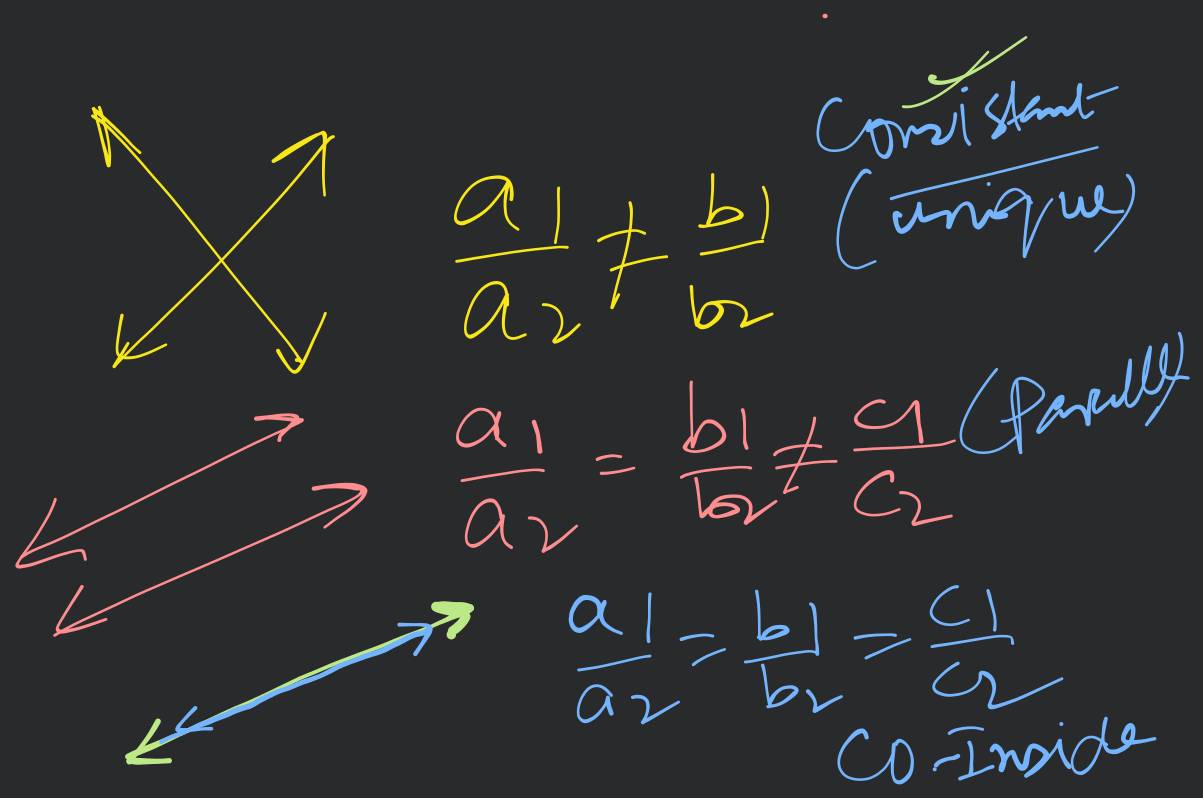 Consistant
(unique)
a1/a2 ≠ b1/b2
a1/a2 = b1/b2 ≠ c1/c2 (Parallel)
a1/a2 = b1/b2 = c1/c2
CO-Inside